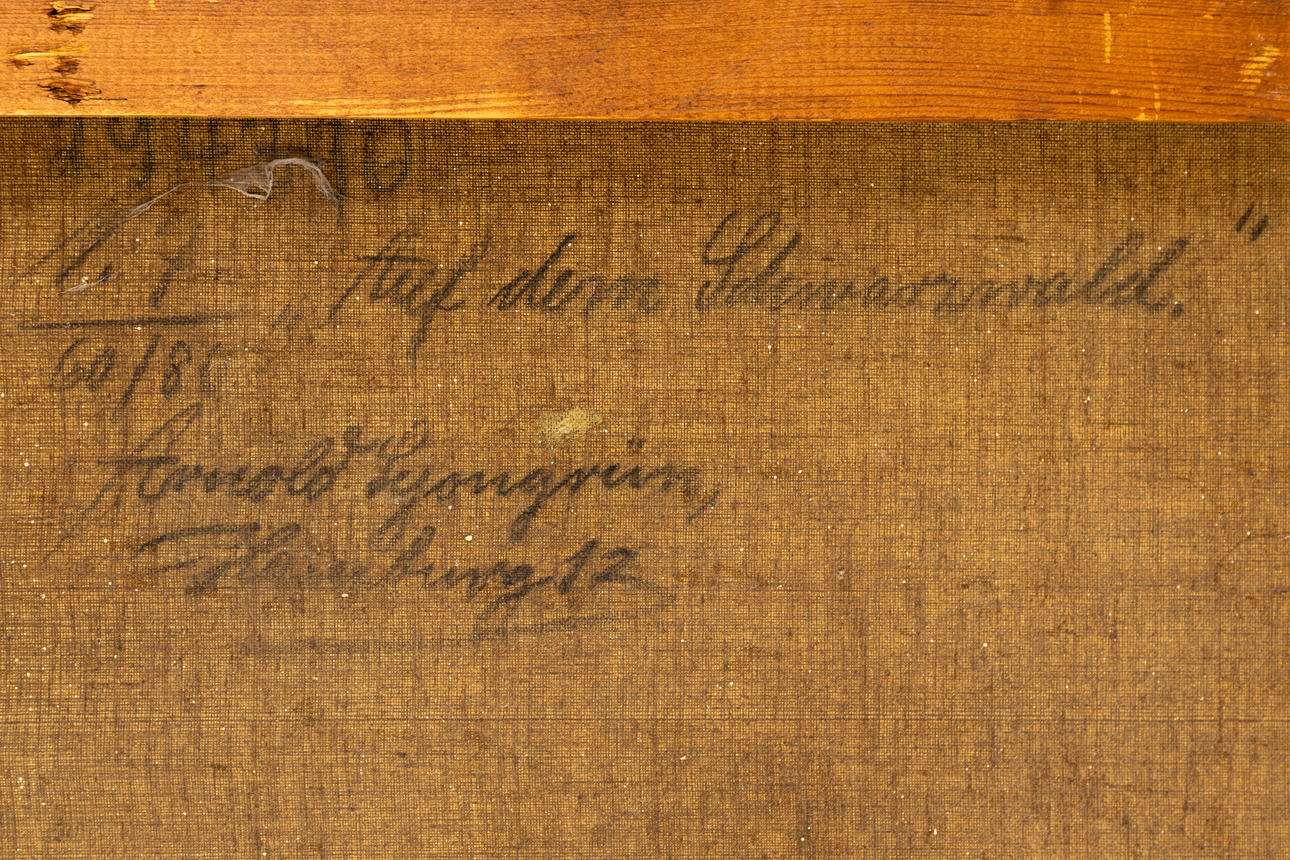 „Auf dem Schwarzwald."
60/80
Arnold Lyongrün,
Hamburg 12